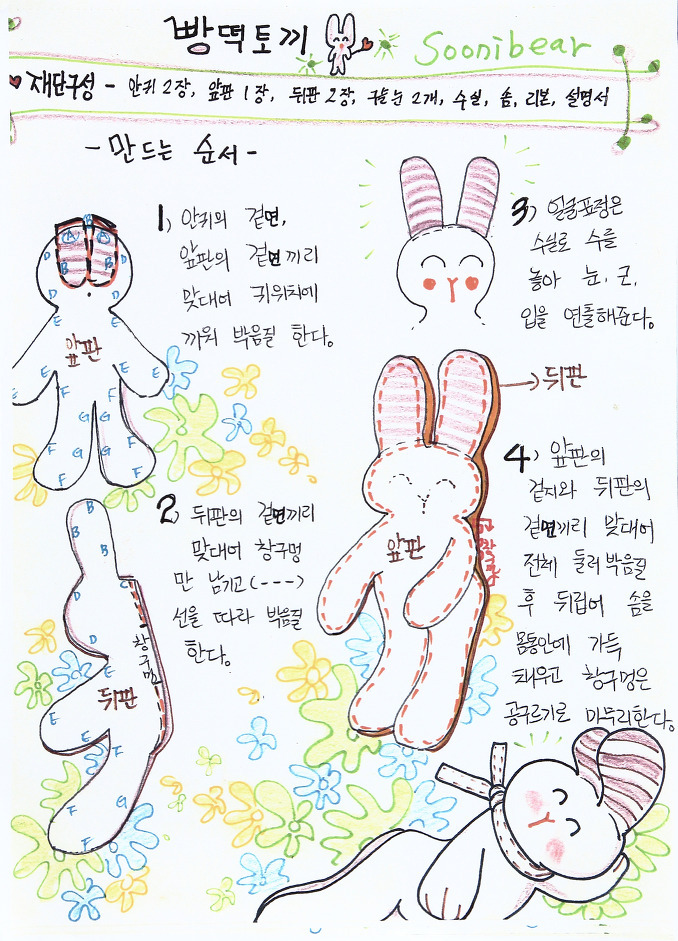 빵떡토끼
Soonibear
재단구성 - 안귀 2장, 앞판 1장, 뒤판 2장, 구슬눈 2개, 수실, 솜, 리본, 설명서
- 만드는 순서 -
1) 안귀의 겉면,
앞판의 겉면끼리
맞대어 귀위치에
끼워 박음질 한다.
B
A A
D D
B B
D D
E E
앞판
E E
G G
F F
F F
2) 뒤판의 겉면끼리
맞대어 창구멍
만 남기고(----)
선을 따라 박음질
한다.
B
B B
D C
D
창구멍
뒤판
E
E F
G
F
3) 얼굴표정은
수실로 수를
놓아 눈, 코,
입을 연출해준다.
뒤판
앞판
4) 앞판의
겉지와 뒤판의
겉면끼리 맞대어
전체 둘러박음질
후 뒤집어 솜을
몸통안에 가득
채우고 창구멍은
공구르기로 마무리한다.